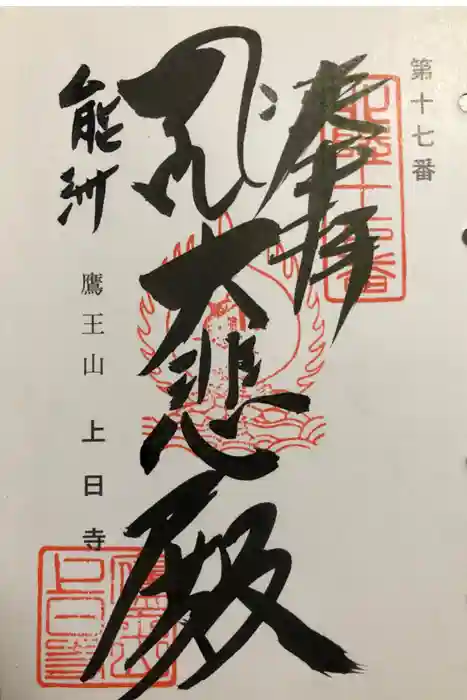 第十七番
奉拝
大悲殿
能洲
鷹王山 上日寺